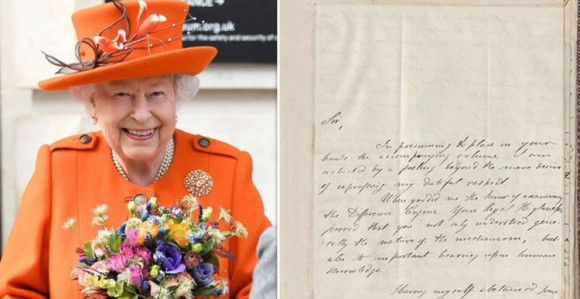 ANCE →
um.org.uk
for the safety and security of
Sir,
In presuming to place in your
hands the accompanying volume I am
actuated by a feeling beyond the mere desire
of expressing my dutiful respect.
When I had the honor of examining
the Difference Engine Your Royal Highness
proved that you not only understood gene-
rally the nature of the mechanism, but
also its important bearing upon human
knowledge.
Having myself obtained from